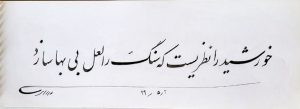 خورشید را نظریست که سنگ را لعل بی بها سازد